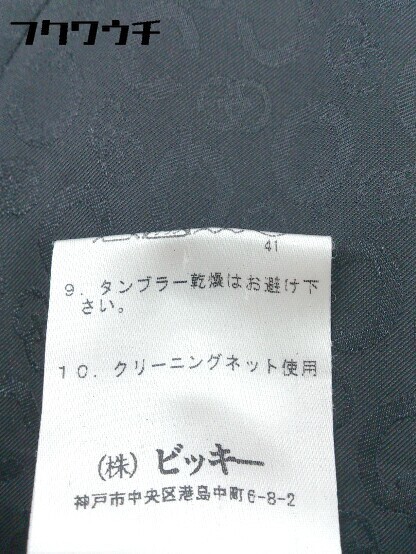 フクワウチ
41
9．タンブラー乾燥はお避け下
さい。
10．クリーニングネット使用
(株) ビッキー
神戸市中央区港島中町6-8-2